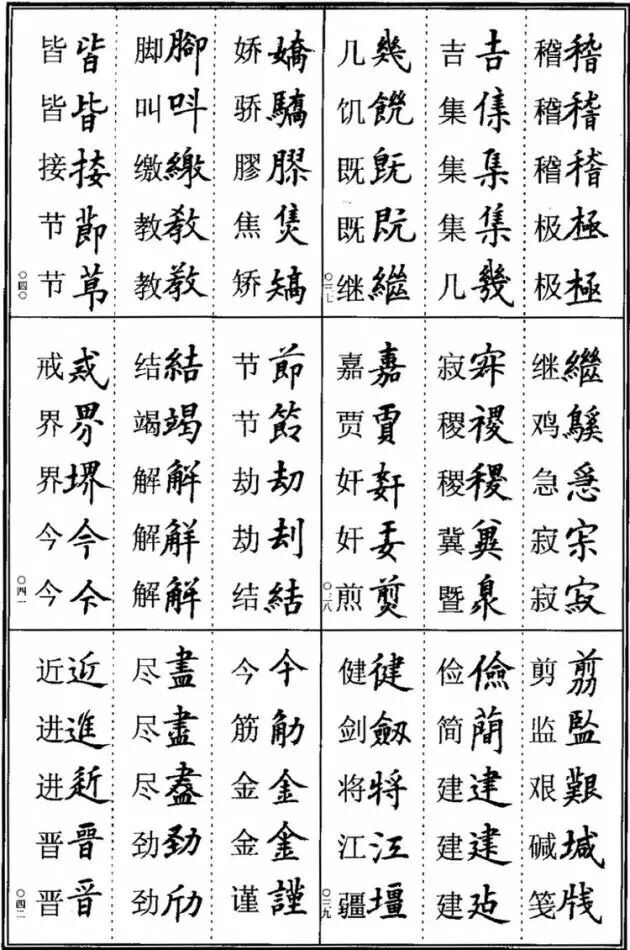 稽稽 稽稽 稽稽 极極 极極
吉吉 集 集集 集集 几幾
几幾 饥饑 既旣 既既 继繼
〇三七
继繼 鸡 急急 寂 寂寂
寂 稷禝 稷稷 冀 暨臮
嘉嘉 贾賈 奸姧 奸 煎煎
〇三八
剪剪 监監 艰艱 碱堿 笺牋
俭儉 简蕳 建建 建建 建
健健 剑劔 将將 江江 疆壃
〇三九
娇嬌 骄驕 膠膠 焦 矫矯
脚腳 叫呌 缴繳 教敎 教教
皆皆 皆皆 接接 节節 节莭
〇四〇
节節 节 劫刧 劫刦 结結
结結 竭竭 解解 解觧 解觧
戒戒 界界 界堺 今今 今
〇四一
今 筋觔 金金 金金 谨謹
尽盡 尽盡 尽盡 劲勁 劲
近近 进進 进 晋晉 晋晋
〇四二